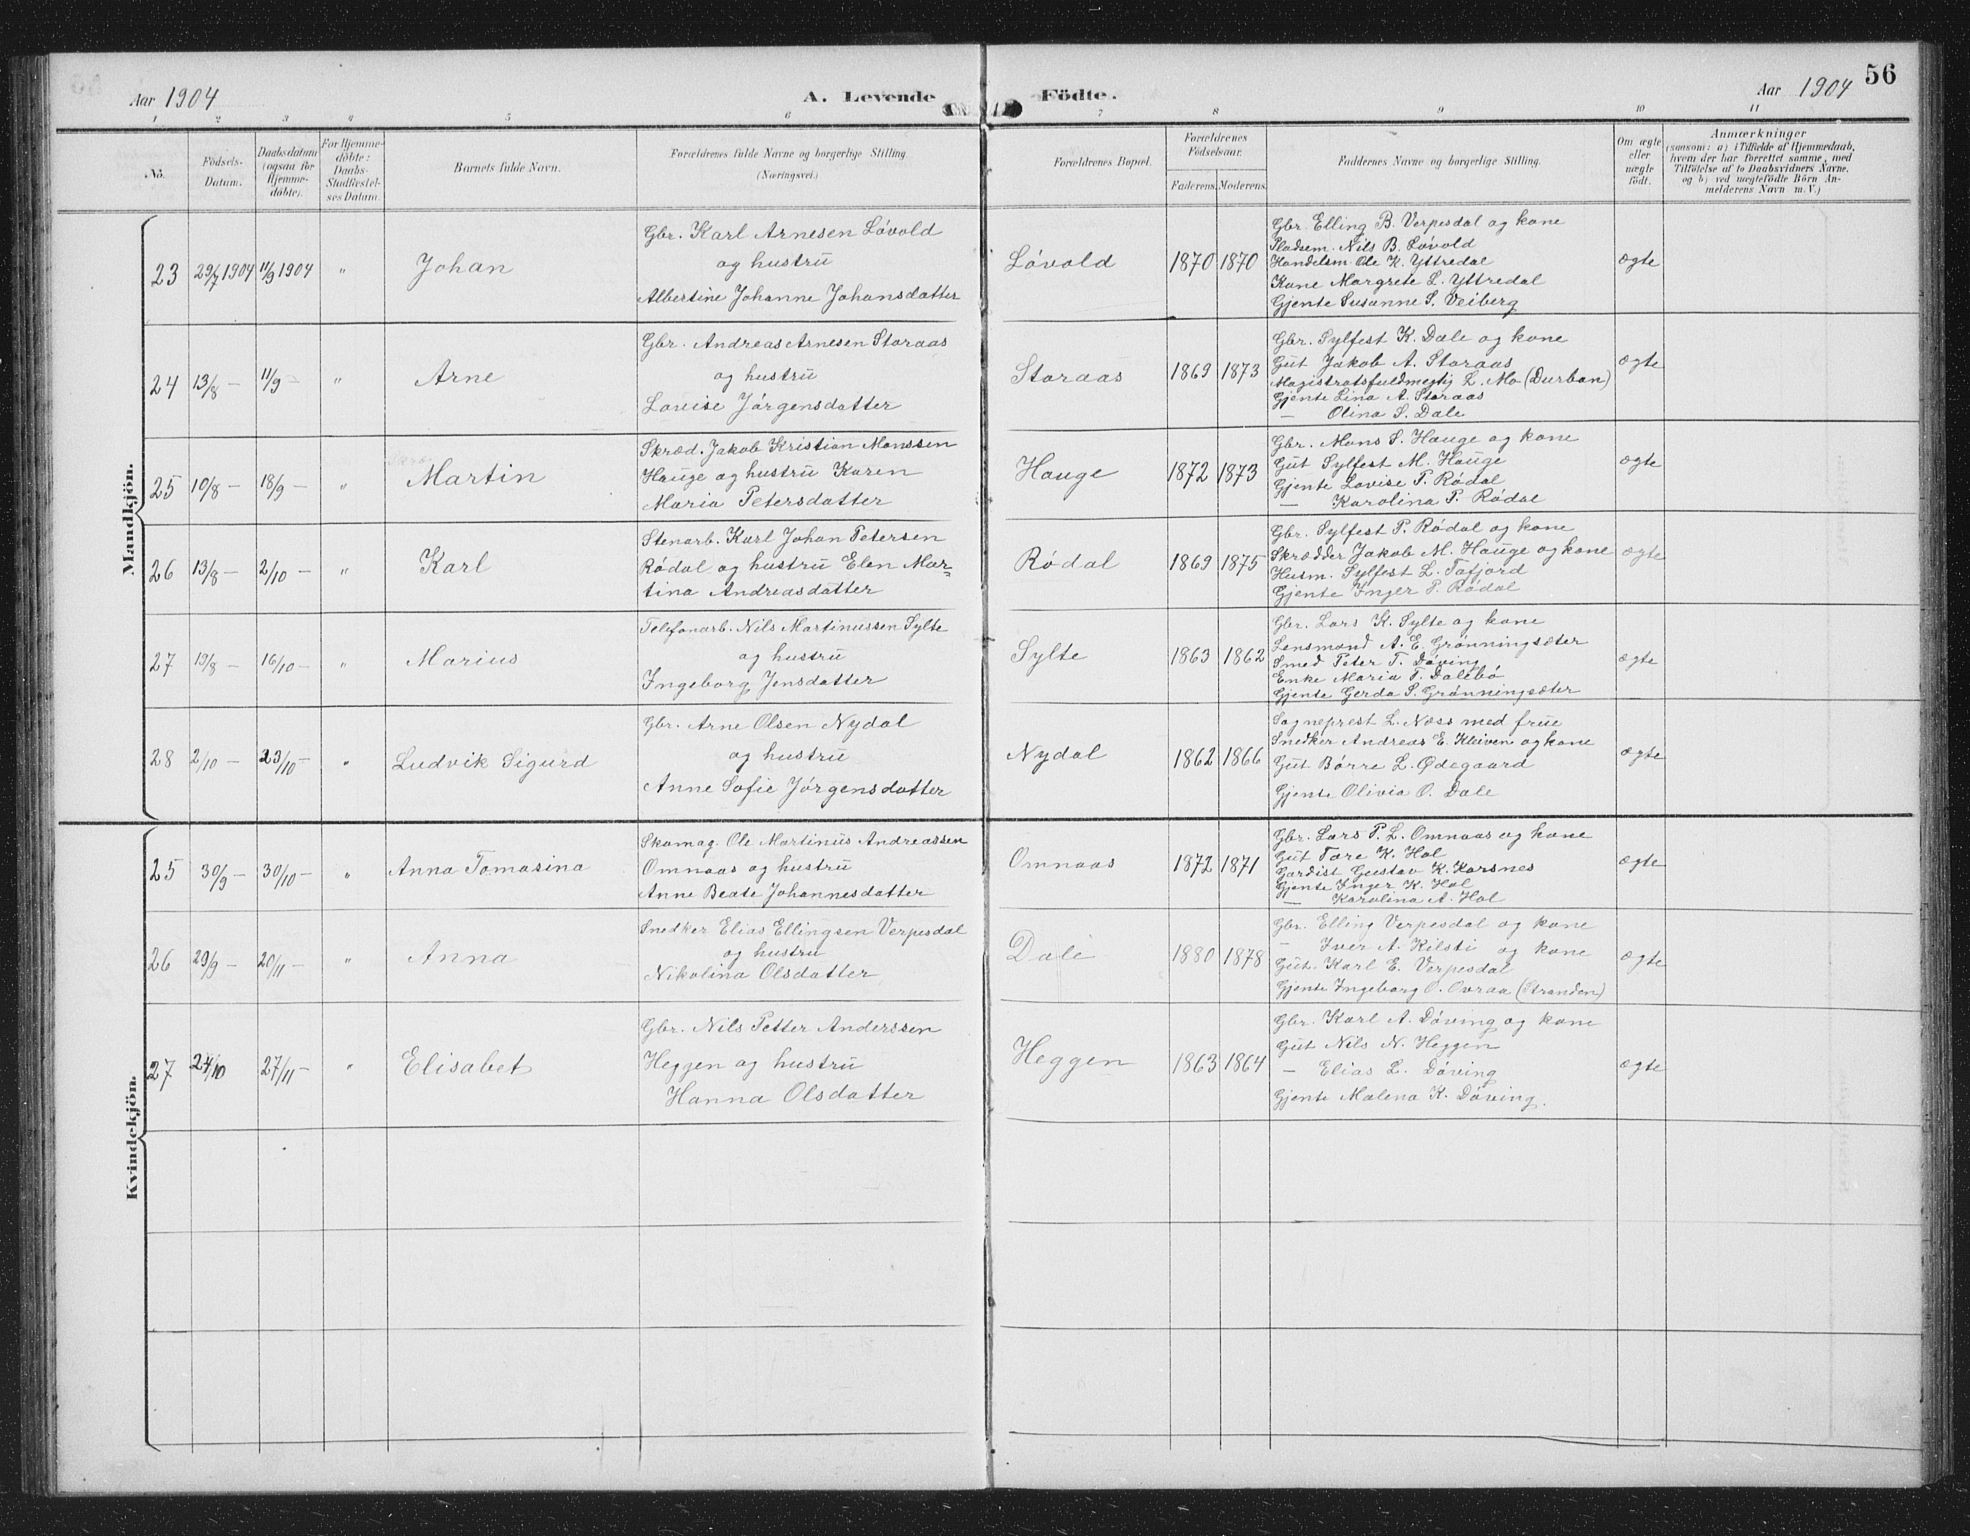 56
Aar 1904
A. Levende
Födte.
Aar 1904
1 2 3 4 5 6 7 8 9 10 11
No.
Födsels-
Datum.
Daabsdatum
(ogsaa for
Hjemme-
döbte).
For Hjemme-
döbte:
Daabs-
Stadfæstel-
ses Datum.
Barnets fulde Navn.
Forældrenes fulde Navne og borgerlige Stilling
(Næringsvei.)
Forældrenes Bopæl.
Forældrenes
Födselsaar.
Faderens. Moderens.
Faddernes Navne og borgerlige Stilling.
Om ægte
eller
uægte
födt.
Anmærkninger
(saasom: a) i Tilfælde af Hjemmedaab,
hvem der har forrettet samme, med
Tilföielse af to Daabsvidners Navne,
og b) ved uægtefödte Börn An-
melderens Navn m. V.)
Mandkjön.
23 29/7 1904 11/9 1904 " Johan
Gbr. Karl Arnesen Lóvold
og hustru
Albertine Johanne Johansdatter
Lóvold 1870 1870
Gbr. Elling B. Verpesdal og kone
Pladsem. Nils B. Lóvold
Handelsm. Ole K. Yttredal
Kone Margrete L. Yttredal
Gjente Susanne S. Veiberg
ægte
24 13/8 — 11/9 — " Arne
Gbr. Andreas Arnesen Storaas
og hustru
Lovise Jórgensdatter
Storaas 1869 1873
Gbr. Sylfest K. Dale og kone
Gut Jakob A. Storaas
Magistratsfuldmegtig L. Mo (Durban)
Gjente Lina A. Storaas
— Olina S. Dale
ægte
25 10/8 — 18/9 — " Martin
Skræd. Jakob Kristian Monssen
Hauge og hustru Karen
Maria Petersdatter
Hauge 1872 1873
Gbr. Mons S. Hauge og kone
Gut Sylfest M. Hauge
Gjente Lovise P. Ródal
— Karolina P. Ródal
ægte
26 13/8 — 2/10 — " Karl
Stenarb. Karl Johan Petersen
Ródal og hustru Elen Mar-
tina Andreasdatter
Ródal 1869 1875
Gbr. Sylfest P. Ródal og kone
Skrædder Jakob M. Hauge og kone
Husm. Sylfest L. Tafjord
Gjente Inger P. Ródal
ægte
27 19/8 — 16/10 — " Marius
Telefonarb. Nils Martinussen Sylte
og hustru
Ingeborg Jensdatter
Sylte 1863 1862
Gbr. Lars K. Sylte og kone
Lensmand A. E. Grónningsæter
Smed Peter T. Dóving
Enke Maria T. Dalebó
Gjente Gerda S. Grónningsæter
ægte
28 2/10 — 23/10 — " Ludvik Sigurd
Gbr. Arne Olsen Nydal
og hustru
Anne Sofie Jórgensdatter
Nydal 1862 1866
Sogneprest L. Næss med frue
Snedker Andreas E. Kleiven og kone
Gut Bórre L. Ødegaard
Gjente Olivia O. Dale
ægte
Kvindekjön.
25 30/9 — 30/10 — " Anna Tomasina
Skomag. Ole Martinus Andreassen
Omnaas og hustru
Anne Beate Johannesdatter
Omnaas 1872 1871
Gbr. Lars P. L. Omnaas og kone
Gut Tore K. Hol
Gardist Gustav K. Korsnes
Gjente Inger K. Hol
— Karolina A. Hol
ægte
26 29/9 — 20/11 — " Anna
Snedker Elias Ellingsen Verpesdal
og hustru
Nikolina Olsdatter
Dale 1880 1878
Gbr. Elling Verpesdal og kone
— Iver A. Kilsti og kone
Gut. Karl E. Verpesdal
Gjente Ingeborg O. Ovraa (Stranden)
ægte
27 24/10 27/11 — " Elisabet
Gbr. Nils Petter Anderssen
Heggen og hustru
Hanna Olsdatter
Heggen 1863 1864
Gbr. Karl A. Dóving og kone
Gut Nils N. Heggen
— Elias L. Dóving
Gjente Malena K. Dóving.
ægte